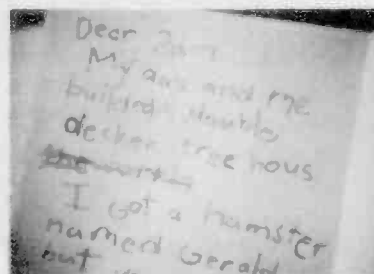 Dear
My dad and me
building double
decker tree hous
I got a hamster
named Gerald
but